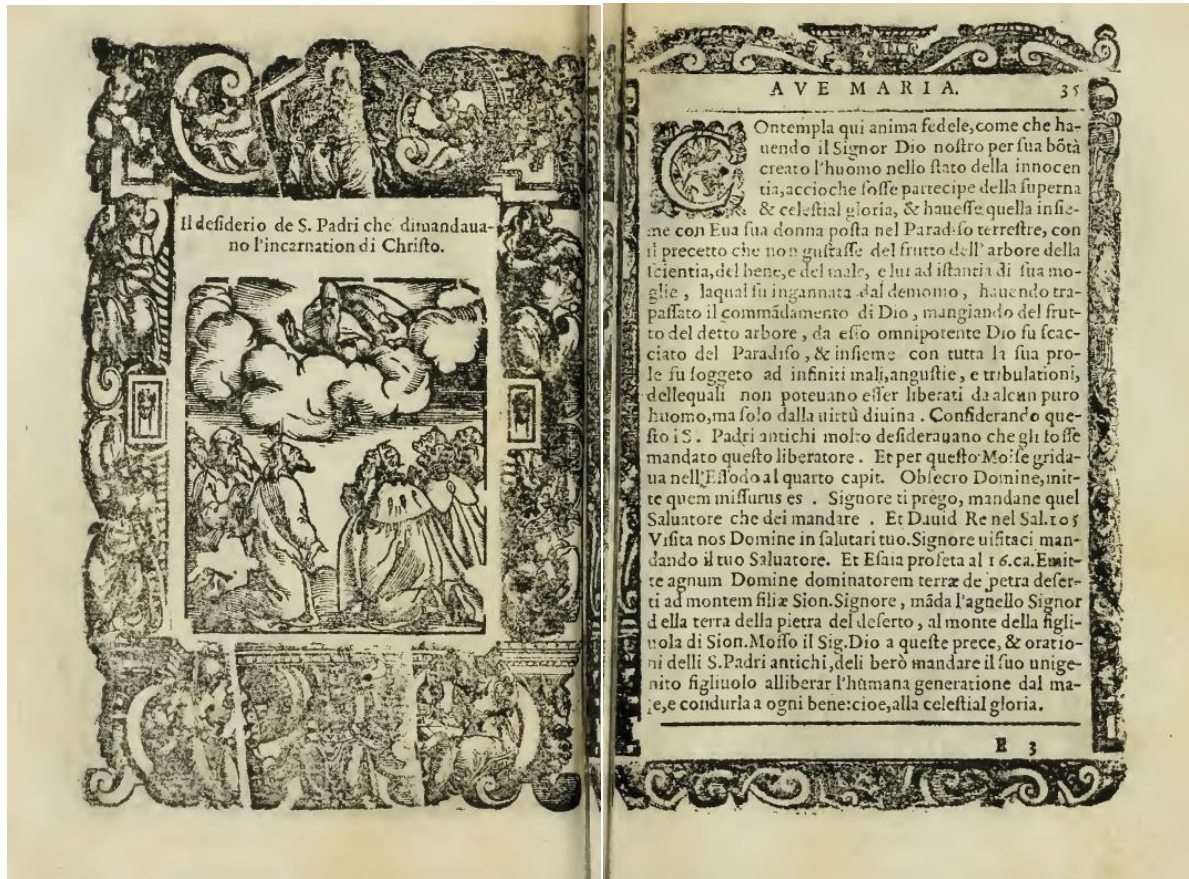 Il desiderio de S. Padri che dimandaua-
no l'incarnation di Christo.
AVE MARIA. 35
COntempla qui anima fedele, come che ha-
uendo il Signor Dio nostro per sua bõtà
creato l'huomo nello stato della innocen
tia, accioche fosse partecipe della superna
& celestial gloria, & hauesse quella insie-
me con Eua sua donna posta nel Paradiso terrestre, con
il precetto che non gustasse del frutto dell'arbore della
scientia, del bene, e del male, e lui ad istantia di sua mo-
glie, laqual fu ingannata dal demonio, hauendo tra-
passato il commãdamento di Dio, mangiando del frut-
to del detto arbore, da esso omnipotente Dio fu scac-
ciato del Paradiso, & insieme con tutta la sua pro-
le fu soggeto ad infiniti mali, angustie, e tribulationi,
dellequali non poteuano esser liberati da alcun puro
huomo, ma solo dalla uirtù diuina. Considerando que-
sto i S. Padri antichi molto desiderauano che gli fosse
mandato questo liberatore. Et per questo Moise grida-
ua nell'Essodo al quarto capit. Obsecro Domine, mit-
te quem missurus es. Signore ti prego, mandane quel
Saluatore che dei mandare. Et Dauid Re nel Sal. 105
Visita nos Domine in salutari tuo. Signore uisitaci man-
dando il tuo Saluatore. Et Esaia profeta al 16. ca. Emit-
te agnum Domine dominatorem terræ de petra deser-
ti ad montem filiæ Sion. Signore, mãda l'agnello Signor
della terra della pietra del deserto, al monte della figli-
uola di Sion. Mosso il Sig. Dio a queste prece, & oratio-
ni delli S. Padri antichi, deliberò mandare il suo unige-
nito figliuolo alliberar l'humana generatione dal ma-
le, e condurla a ogni bene: cioe, alla celestial gloria.
E 3